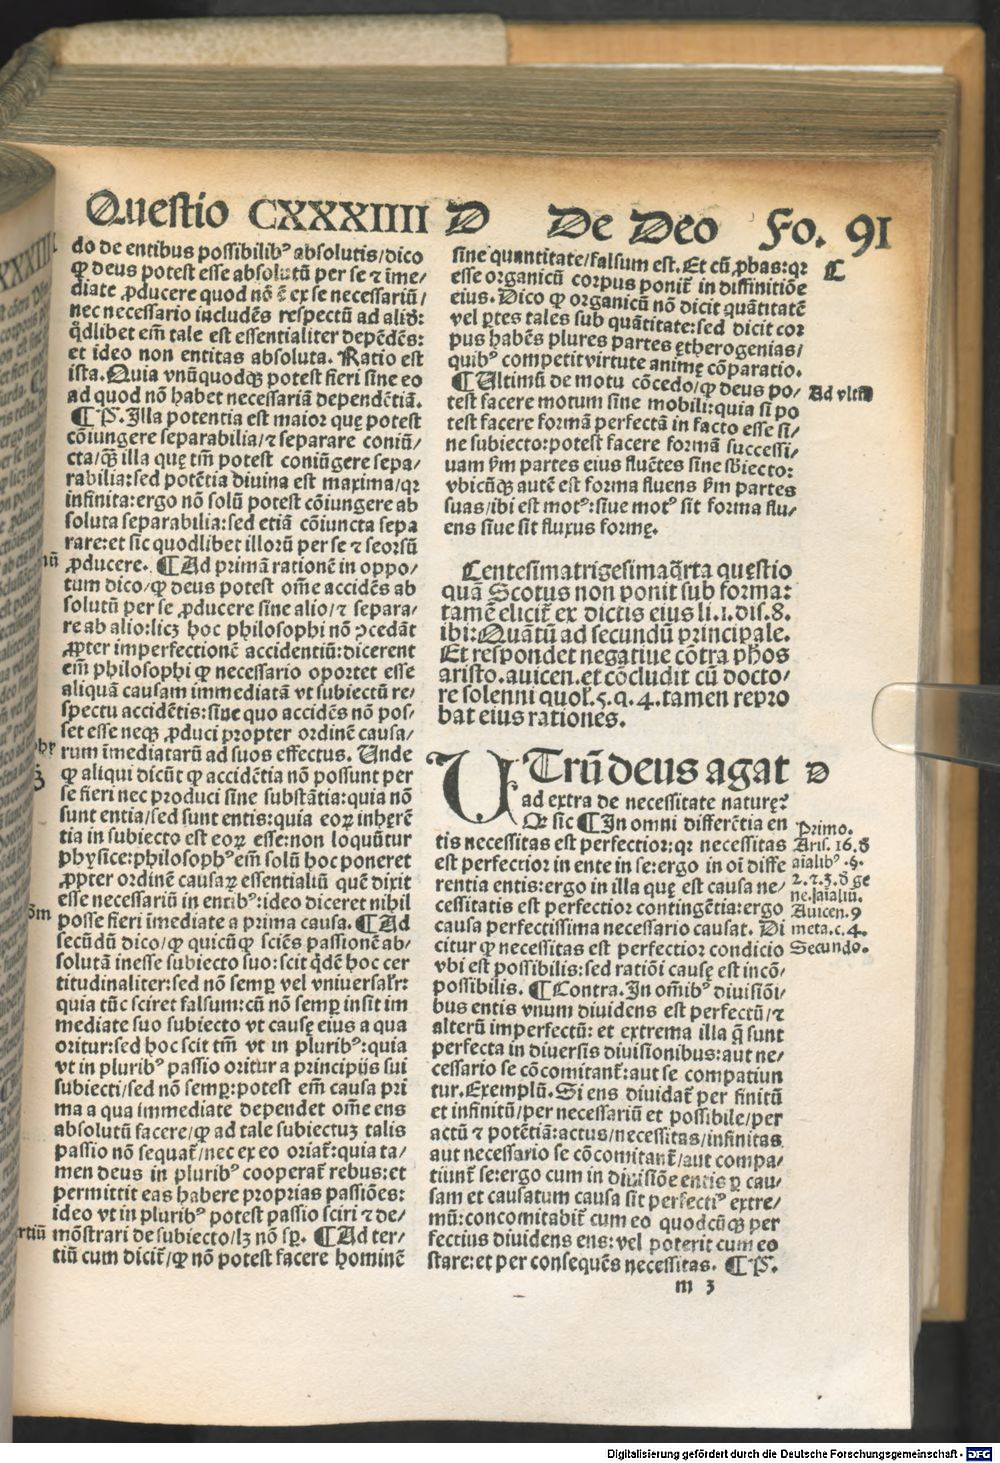 Questio CXXXIIII D De Deo Fo. 91
do de entibus possibilibꝰ absolutis/dico
ꝙ deus potest esse absolutū per se ⁊ īme/
diate ꝓducere quod nō ē ex se necessariū/
nec necessario includēs respectū ad aliđ:
q̄dlibet em̄ tale est essentialiter depēdēs:
et ideo non entitas absoluta. Ratio est
ista. Quia vnūquodqꝫ potest fieri sine eo
ad quod nō habet necessariā dependētiā.
¶ P̄. Illa potentia est maior quę potest
cōiungere separabilia/⁊ separare coniū/
cta/qꝫ illa quę tm̄ potest coniūgere sepa/
rabilia: sed potētia diuina est maxima/qꝛ
infinita: ergo nō solū potest cōiungere ab
soluta separabilia: sed etiā cōiuncta sepa
rare: et sic quodlibet illorū per se ⁊ seorsū
ꝓducere. ¶ Ad primā rationē in oppo/
tum dico/ꝙ deus potest om̄e accidēs ab
solutū per se ꝓducere sine alio/⁊ separa/
re ab alio: licꝫ hoc philosophi nō ↄcedāt
ꝓpter imperfectionē accidentiū: dicerent
em̄ philosophi ꝙ necessario oportet esse
aliquā causam immediatā vt subiectū re/
spectu accidētis: sine quo accidēs nō pos/
set esse neqꝫ ꝓduci propter ordinē causa/
rum īmediatarū ad suos effectus. Unde
ꝙ aliqui dicūt ꝙ accidētia nō possunt per
se fieri nec produci sine substātia: quia nō
sunt entia/sed sunt entis: quia eoꝝ inherē
tia in subiecto est eoꝝ esse: non loquūtur
physice: philosophꝰ em̄ solū hoc poneret
ꝓpter ordinē causaꝝ essentialiū quē dixit
esse necessariū in entibꝰ: ideo diceret nihil
posse fieri īmediate a prima causa. ¶ Ad
secūdū dico/ꝙ quicūqꝫ sciēs passionē ab/
solutā inesse subiecto suo: scit q̄dē hoc cer
titudinaliter: sed nō semꝑ vel vniuersaƚr:
quia tūc sciret falsum: cū nō semꝑ insit im
mediate suo subiecto vt causę eius a qua
oritur: sed hoc scit tm̄ vt in pluribꝰ: quia
vt in pluribꝰ passio oritur a principijs sui
subiecti/sed nō semꝑ: potest em̄ causa pri
ma a qua immediate dependet om̄e ens
absolutū facere/ꝙ ad tale subiectuꝫ talis
passio nō sequat̄/nec ex eo oriat̄: quia ta/
men deus in pluribꝰ cooperat̄ rebus: et
permittit eas habere proprias passiōes:
ideo vt in pluribꝰ potest passio sciri ⁊ de/
mōstrari de subiecto/lꝫ nō sꝑ. ¶ Ad ter/
tiū cum dicit̄/ꝙ nō potest facere hominē
sine quantitate/falsum est. Et cū ꝓbas: qꝛ
esse organicū corpus ponit̄ in diffinitiōe
eius. Dico ꝙ organicū nō dicit quātitatē
vel ꝑtes tales sub quātitate: sed dicit cor
pus habēs plures partes ętherogenias/
quibꝰ competit virtute animę cōparatio.
¶ Ultimū de motu cōcedo/ꝙ deus po/
test facere motum sine mobili: quia si po
test facere formā perfectā in facto esse si/
ne subiecto: potest facere formā successi/
uam ẜm partes eius fluētes sine sbiecto:
vbicūqꝫ autē est forma fluens ẜm partes
suas/ibi est motꝰ: siue motꝰ sit forma flu/
ens siue sit fluxus formę.
C
Ad vltīū
Centesimatrigesimaq̄rta quęstio
quā Scotus non ponit sub forma:
tamē elicit̄ ex dictis eius li.1.dis.8.
ibi: Quātū ad secundū principale.
Et respondet negatiue cōtra phōs
aristo.auicen.et cōcludit cū docto/
re solenni quol.5.q.4.tamen repro
bat eius rationes.
UTrū deus agat D
ad extra de necessitate naturę?
Qꝛ sic ¶ In omni differētia en
tis necessitas est perfectior: qꝛ necessitas
est perfectior in ente in se: ergo in oī diffe
rentia entis: ergo in illa quę est causa ne/
cessitatis est perfectior contingētia: ergo
causa perfectissima necessario causat. Di
citur ꝙ necessitas est perfectior condicio
vbi est possibilis: sed ratiōi causę est incō/
possibilis. ¶ Contra. In om̄ibꝰ diuisiōi/
bus entis vnum diuidens est perfectū/⁊
alterū imperfectū: et extrema illa q̄ sunt
perfecta in diuersis diuisionibus: aut ne/
cessario se cōcomitant̄: aut se compatiun
tur. Exemplū. Si ens diuidat̄ per finitū
et infinitū/per necessariū et possibile/per
actū ⁊ potētiā: actus/necessitas/infinitas
aut necessario se cōcomitant̄/aut compa/
tiunt̄ se: ergo cum in diuisiōe entis ꝑ cau/
sam et causatum causa sit perfectiꝰ extre/
mū: concomitabit̄ cum eo quodcūqꝫ per
fectius diuidens ens: vel poterit cum eo
stare: et per consequēs necessitas. ¶ P̄.
Primo.
Aris. 16. đ
aīalibꝰ .§.
2.⁊.3.đ ge
ne.aīaliū.
Auicen. 9
meta.c.4.
Secundo.
m 3
Digitalisierung gefördert durch die Deutsche Forschungsgemeinschaft - DFG